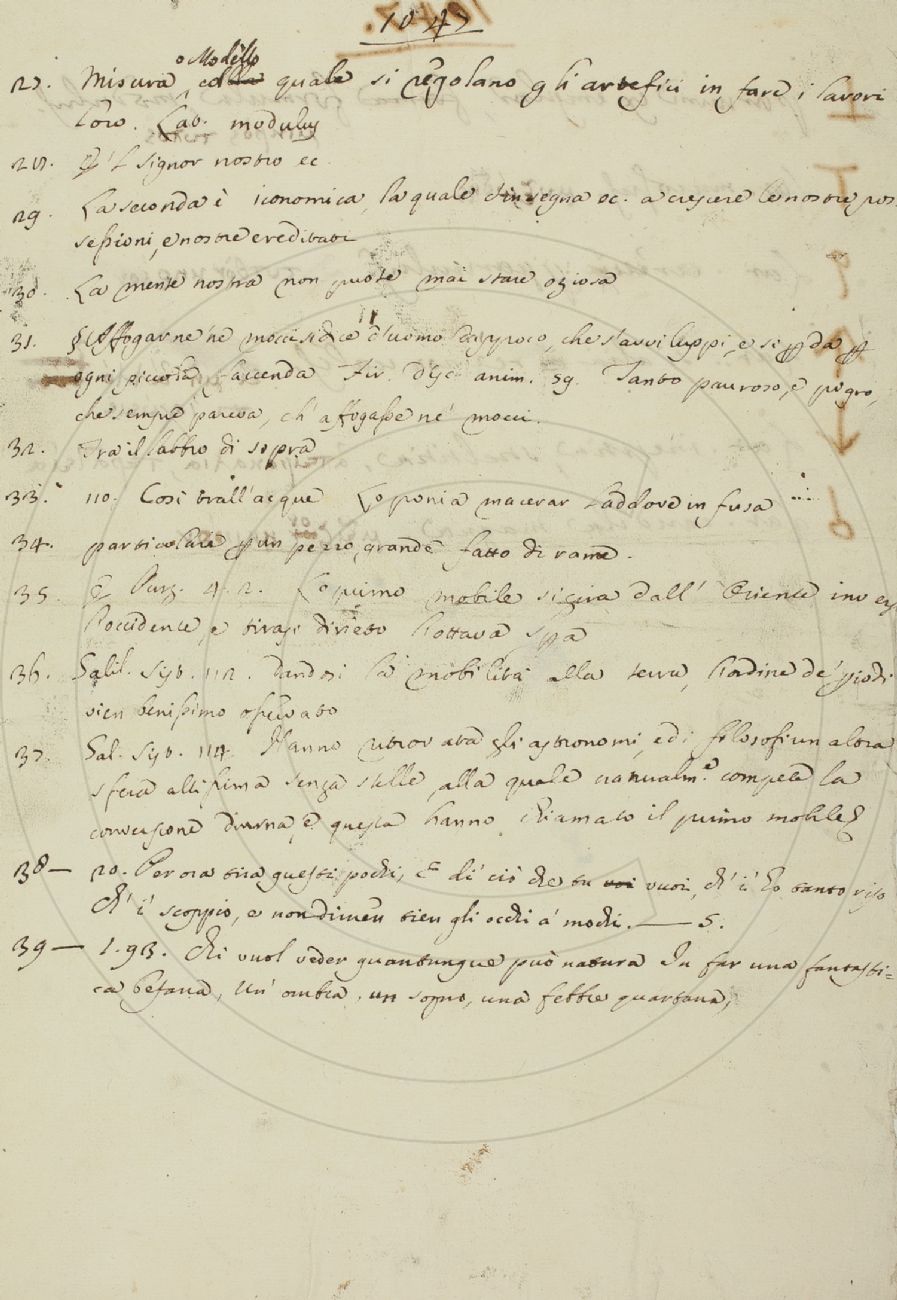 1047
o Modello
27. Misura, colla quale si regolano gli artefici in fare i lavori
loro. Lat. modulus
28. E 'l signor nostro ec.
29. La seconda è iconomica, la quale c'insegna ec. a crescere le nostre pos-
sessioni, e nostre ereditati
30. La mente nostra non puote mai stare oziosa
31. § Affogar ne' mocci si dice d'uomo dappoco, che s'avviluppi, e si pda p
ogni piccola faccenda Fir. disc. anim. 59. Tanto pauroso, e pigro,
che sempre pareva, ch' affogasse ne' mocci.
32. Tra il labbro di sopra
33. 110. Così trall'acque Lo ponia macerar laddove infusa
34. particolare p un pezzo grande fatto di rame.
35. E Purg. 4. 2. Lo primo mobile si gira dall' Oriente inver
l'occidente, e tirasi dirieto l'ottava spa
36. Galil. Sist. 112. dandosi la mobilità alla terra, l'ordine de' piodi
vien benissimo osservato
37. Gal. Sist. 114. Hanno ritrovata gli astronomi, ed i filosofi un altra
sfera altissima senza stelle, alla quale naturalm.e competa la
conversione diurna, e questa hanno chiamato il primo mobile
38— 20. Per ora tira questi pochi, E di' ciò che tu voi vuoi, ch' i' ho tanto riso
Ch' i' scoppio, e nondimen tien gli occhi a' mochi. — S.
39— 1. 93. Chi vuol veder quantunque può natura In far una fantasti=
ca befana, Un' ombra, un sogno, una febbre quartana,